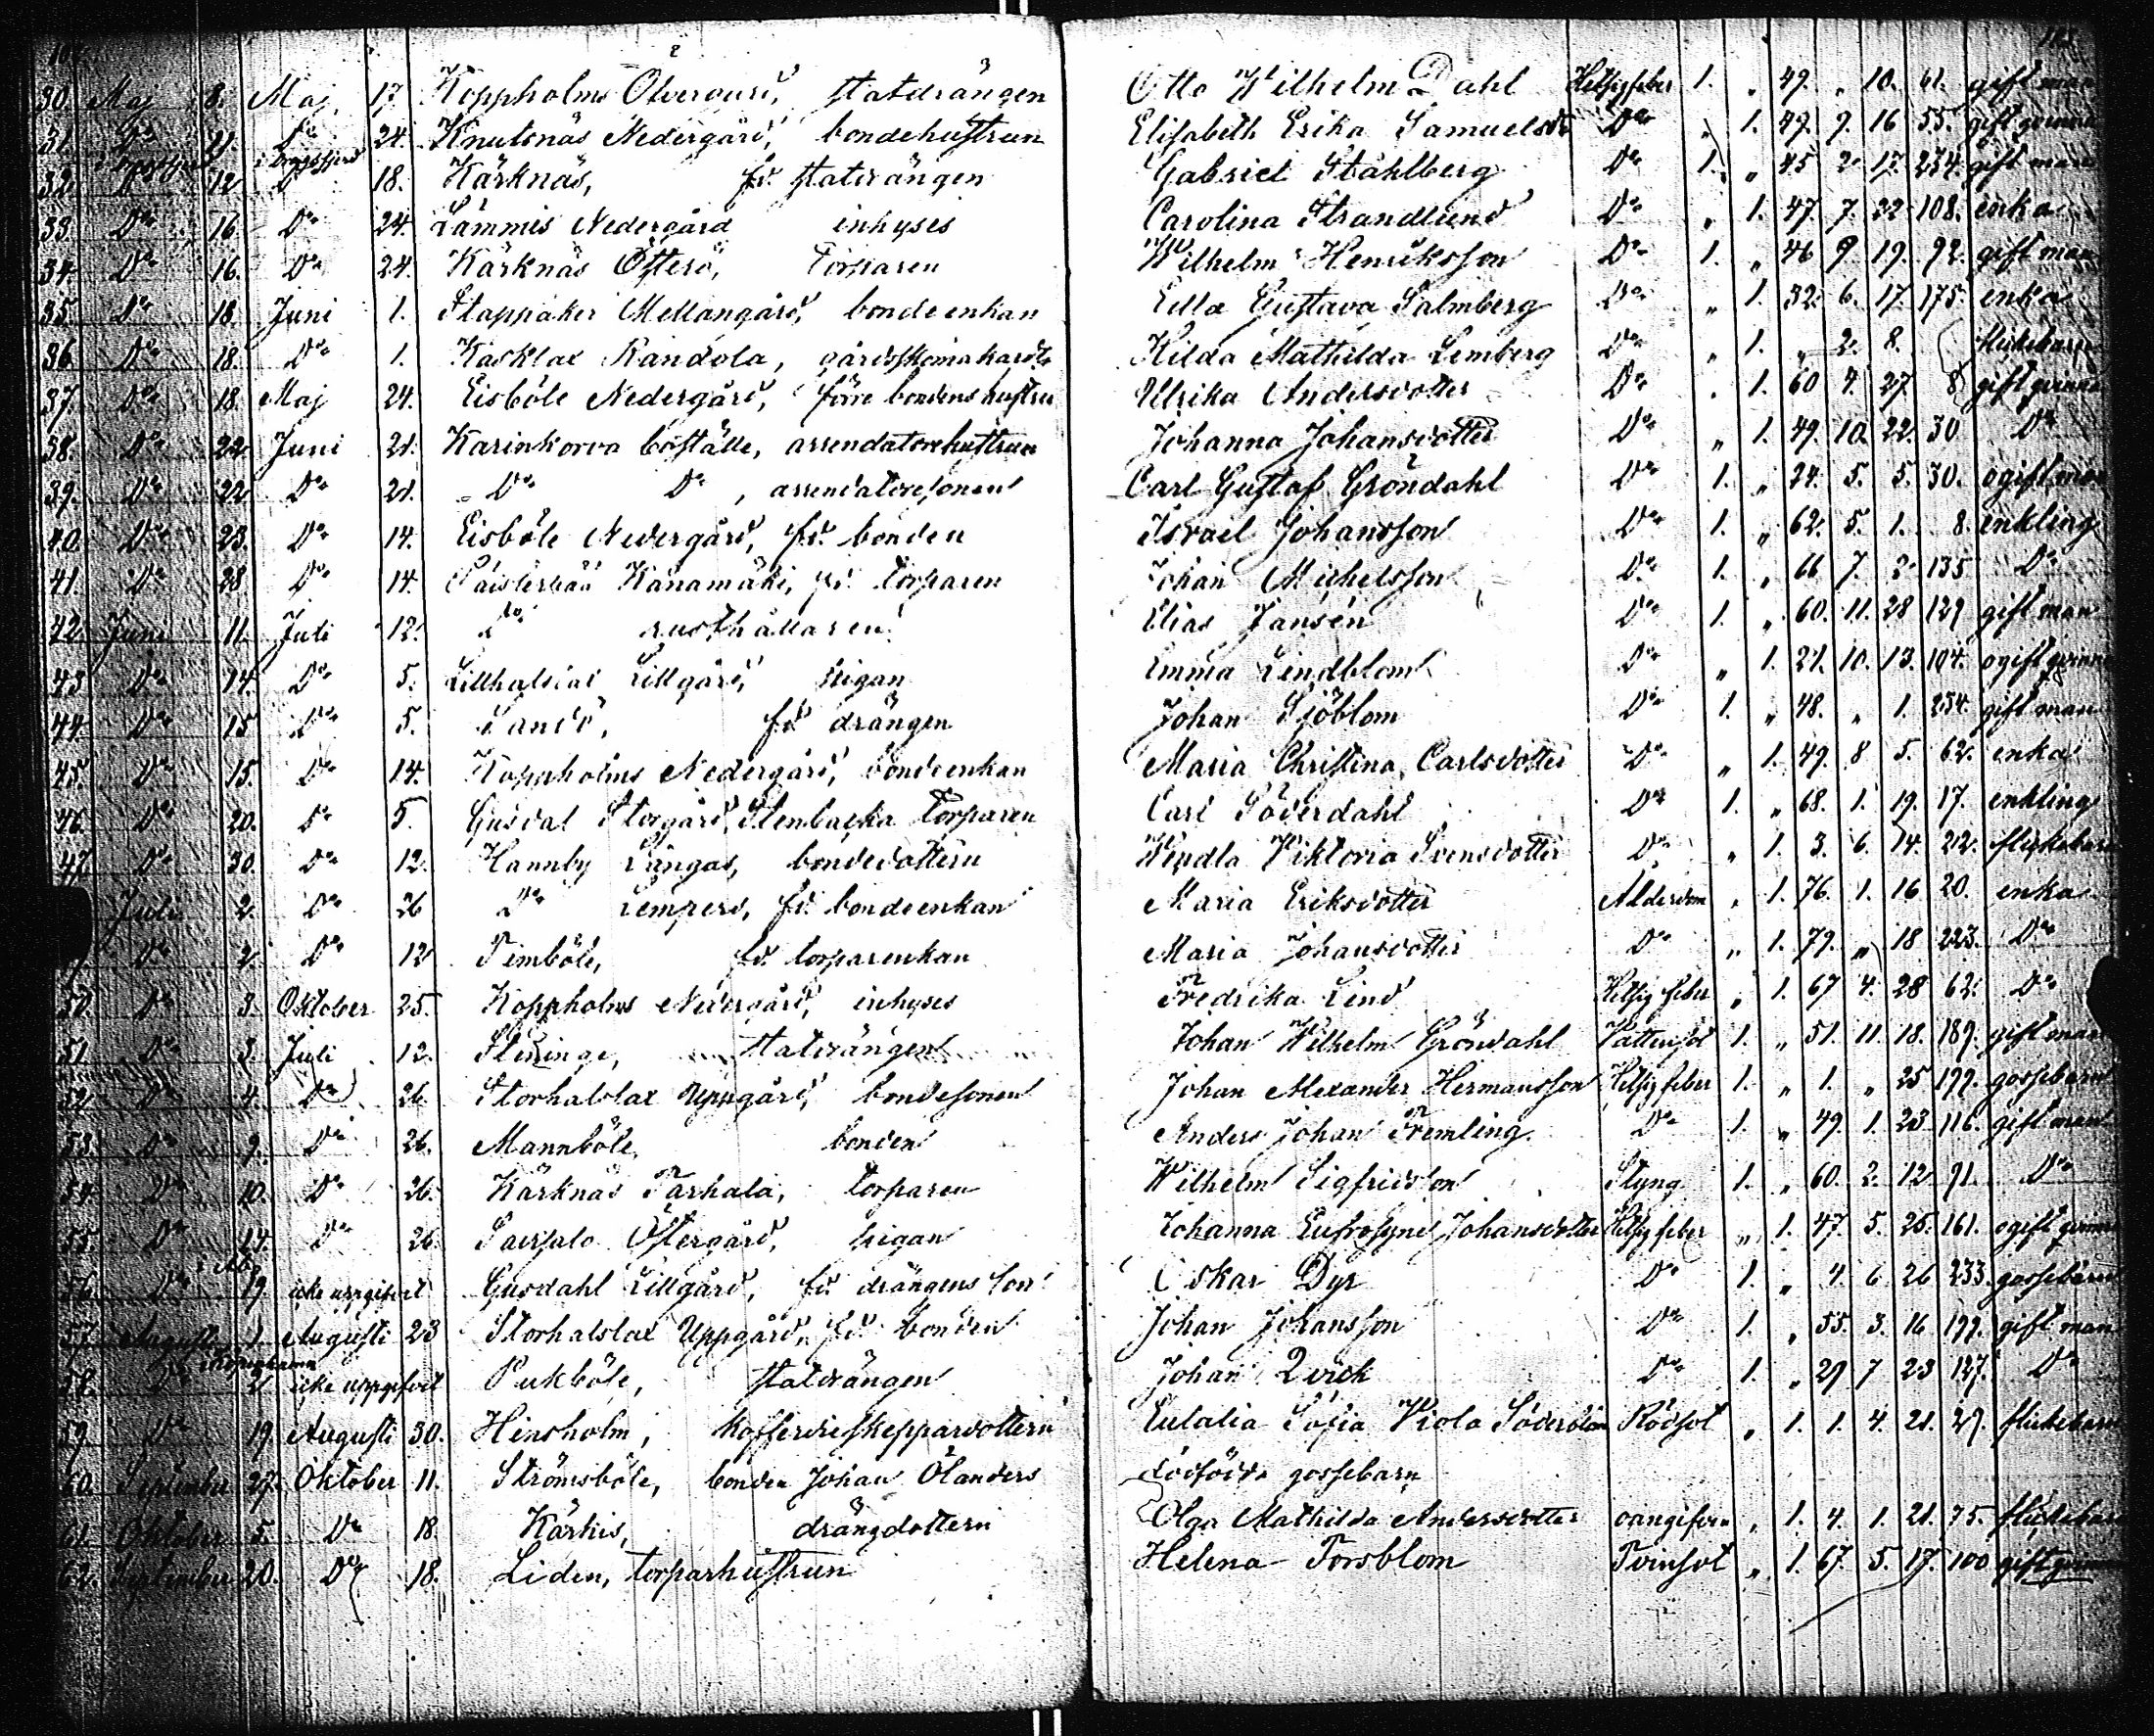 30. Maj 8. Maj 17. Koppholms Öfverourd, statdrängen Otto Wilhelm Dahl Hetsig feber 1. „ 49. „ 10. 61. gift man
31. Do 11. Do 24. Knutsnäs Nedergård, bondehustrun Elisabeth Erika Samuelsdr Do „ 1. 49. 9. 16 55. gift qvinna
32. Do 12 Do 18. Kärknäs, fd. statdrängen Gabriel Ståhlberg Do 1. „ 45 2 17. 234. gift man
33. Do 16. Do 24. Lämmis Nedergård inhyses Carolina Strandlund Do „ 1. 47. 7. 22 108. enka
34. Do 16. Do 24. Kärknäs Österö, Torparen Wilhelm Henriksson Do 1. „ 46 9. 19. 92. gift man
35. Do 18. Juni 1. Stappaker Mellangård, bondeenkan Ulla Gustava Salmberg Do „ 1. 32. 6. 17. 175. enka
36. Do 18. Do 1. Kasklax Randola, Hilda Mathilda Lemberg Do „ 1. „ 2. 8. flickebarn
37. Do 18. Maj 24. Eisböle Nedergård, förre bondens hustru Ulrika Andersdotter Do „ 1. 60 4. 27. 8 gift qvinna
38. Do 22 Juni 21. Karinkorva boställe, arrendatorehustrun Johanna Johansdotter Do „ 1. 49. 10. 22. 30 Do
39. Do 22 Do 21. Do Do, arrendatoresonen Carl Gustaf Gröndahl Do 1. „ 24. 5. 5. 30. ogift man
40. Do 23. Do 14. Eisböle Nedergård, fd. bonden Israel Johansson Do 1. „ 62. 5. 1. 8. enkling
41. Do 28 Do 14. Kanamäki, fd. torparen Johan Michelsson Do 1. „ 66 7. 2 135 Do
42 Juni 11. Juli 12. Do rusthållaren Elias Jansén Do 1. „ 60. 11. 28 129 gift man
43 Do 14. Do 5. Lillhalslax Lillgård, pigan Emma Lindblom Do „ 1. 21. 10. 13. 104. ogift qvinna
44. Do 15 Do 5. Sandö, fd drängen Johan Sjöblom Do 1. „ 48. „ 1. 254. gift man
45. Do 15. Do 14. Koppholms Nedergård, bondeenkan Maria Christina Carlsdotter Do „ 1. 49. 8 5. 62. enka
46. Do 20. Do 5. Gusdal Storgård, Stenbacka torparen Carl Söderdahl Do 1. „ 68. 1. 19. 17. enkling
47. Do 30. Do 12. Hannby Långas, bondedottern Wendla Viktoria Svensdotter Do „ 1. 3. 6. 14. 212. flickebarn
Juli 2. Do 26 Do Lempers, fd. bondeenkan Maria Eriksdotter Ålderdom „ 1. 76. 1. 16 20. enka
Do 2. Do 12 Simböle, fd. torparenkan Maria Johansdotter Do „ 1. 79. „ 18 223. Do
50. Do 3. Oktober 25. Koppholms Nedergård, inhyses Fredrika Lind Hetsig feber „ 1. 67 4. 28 62. Do
51. Do 3. Juli 12. Steninge, statdrängen Johan Wilhelm Gröndahl Vattusot 1. „ 51. 11. 18. 189. gift man
52. Do 4. Do 26. Storhalslax Uppgård, bondesonen Johan Alexander Hermansson Hetsig feber 1. „ 1. „ 25 199. gossebarn
53. Do 9. Do 26. Mannböle, bonden Anders Johan Fremling Do 1. „ 49. 1. 23 116. gift man
54. Do 10. Do 26. Kärknäs Tarhala, torparen Wilhelm Sigfridsson Styng 1. „ 60. 2. 12. 91. Do
55. Do 14. Do 26. Östergård, pigan Johanna Eufrosyne Johansdotter Hetsig feber „ 1. 47. 5. 25. 161. ogift qvinna
56. Do i Åbo 19. icke uppgifvet Gusdahl Lillgård, fd. drängens son Oskar Dyr Do 1. „ 4. 6 26 233. gossebarn
57. Augusti 1. Augusti 23 Storhalslax Uppgård, fd. bonden Johan Johansson Do 1. „ 55. 3. 16 199. gift man
58. Do 2 icke uppgifvet Pukböle, statdrängen Johan Qvick Do 1. „ 29 7 23 127. Do
59. Do 19. Augusti 30. Hinsholm, kofferdiskeppardottern Eulalia Sofia Viola Söderblom Rödsot „ 1. 1. 4. 21. 29. flickebarn
60. September 27. Oktober 11. Strömsböle, bonden Johan Ölanders dödfödde gossebarn
61. Oktober 5. Do 18. Kärkis, drängdottern Olga Mathilda Andersdotter oangifven „ 1. 4. 1. 21. 75. flickebarn
62. September 20. Do 18. Liden, torparhustrun Helena Forsblom Tvinsot „ 1. 67. 5. 17. 100 gift qvinna